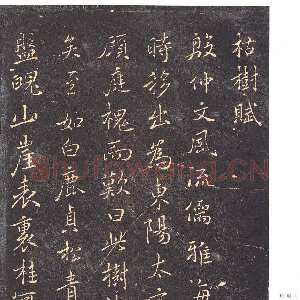 枯樹賦
殷仲文風流儒雅海
時移出為東陽太
顧庭槐而歎曰此樹
矣至如白鹿貞松青
盤魄山崖表裏桂